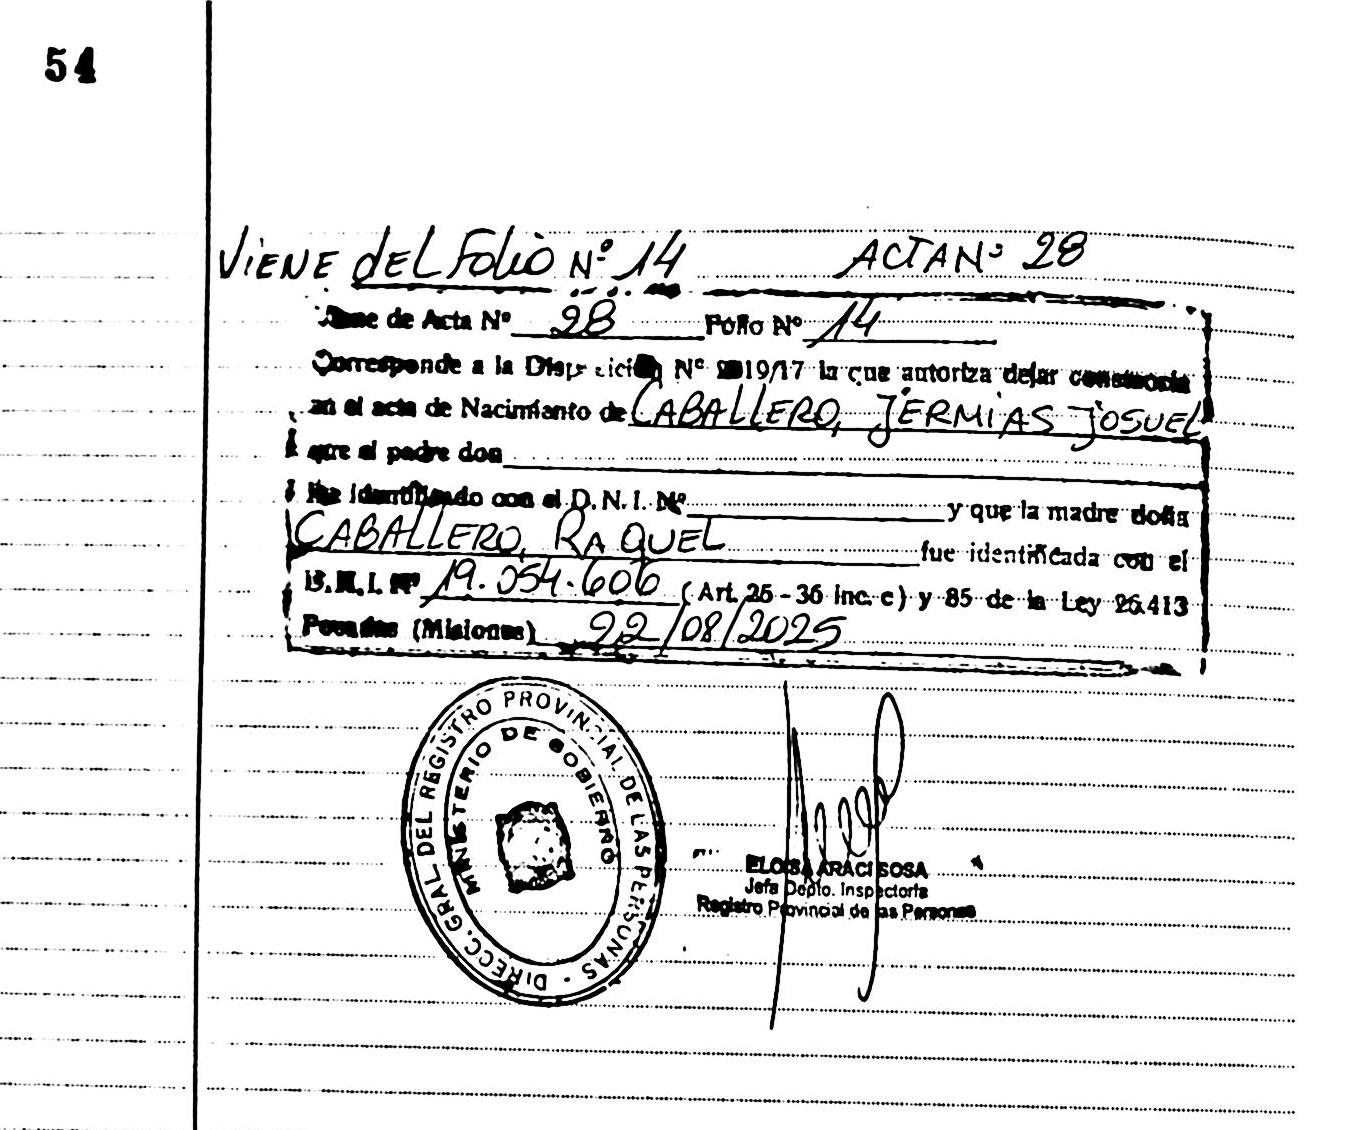 54
VIENE DEL FOLIO Nº 14 ACTA Nº 28
Viene de Acta Nº 28 Folio Nº 14
Corresponde a la Disposición Nº 2019/17 la que autoriza dejar constancia
en el acta de Nacimiento de CABALLERO, JERMIAS JOSUEL
que el padre don
fue identificado con el D.N.I. Nº y que la madre doña
CABALLERO, RAQUEL fue identificada con el
D.N.I. Nº 19.054.606 (Art. 25 - 36 inc. c) y 85 de la Ley 26.413
Posadas (Misiones) 22/08/2025
DIRECC. GRAL DEL REGISTRO PROVINCIAL DE LAS PERSONAS -
MINISTERIO DE GOBIERNO
ELOISA ARACI SOSA
Jefa Depto. Inspectoría
Registro Provincial de las Personas